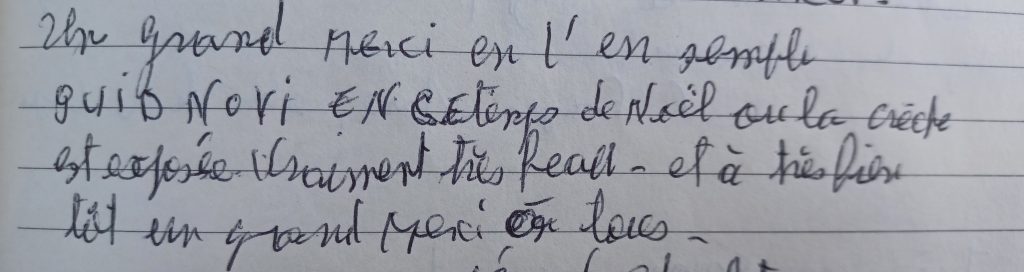 Un grand merci en l'en semble
QUID NOVI EN CE temps de Noël ou la crèche
est exposée vraiment très beau - et à très bien
tôt un grand merci à tous -